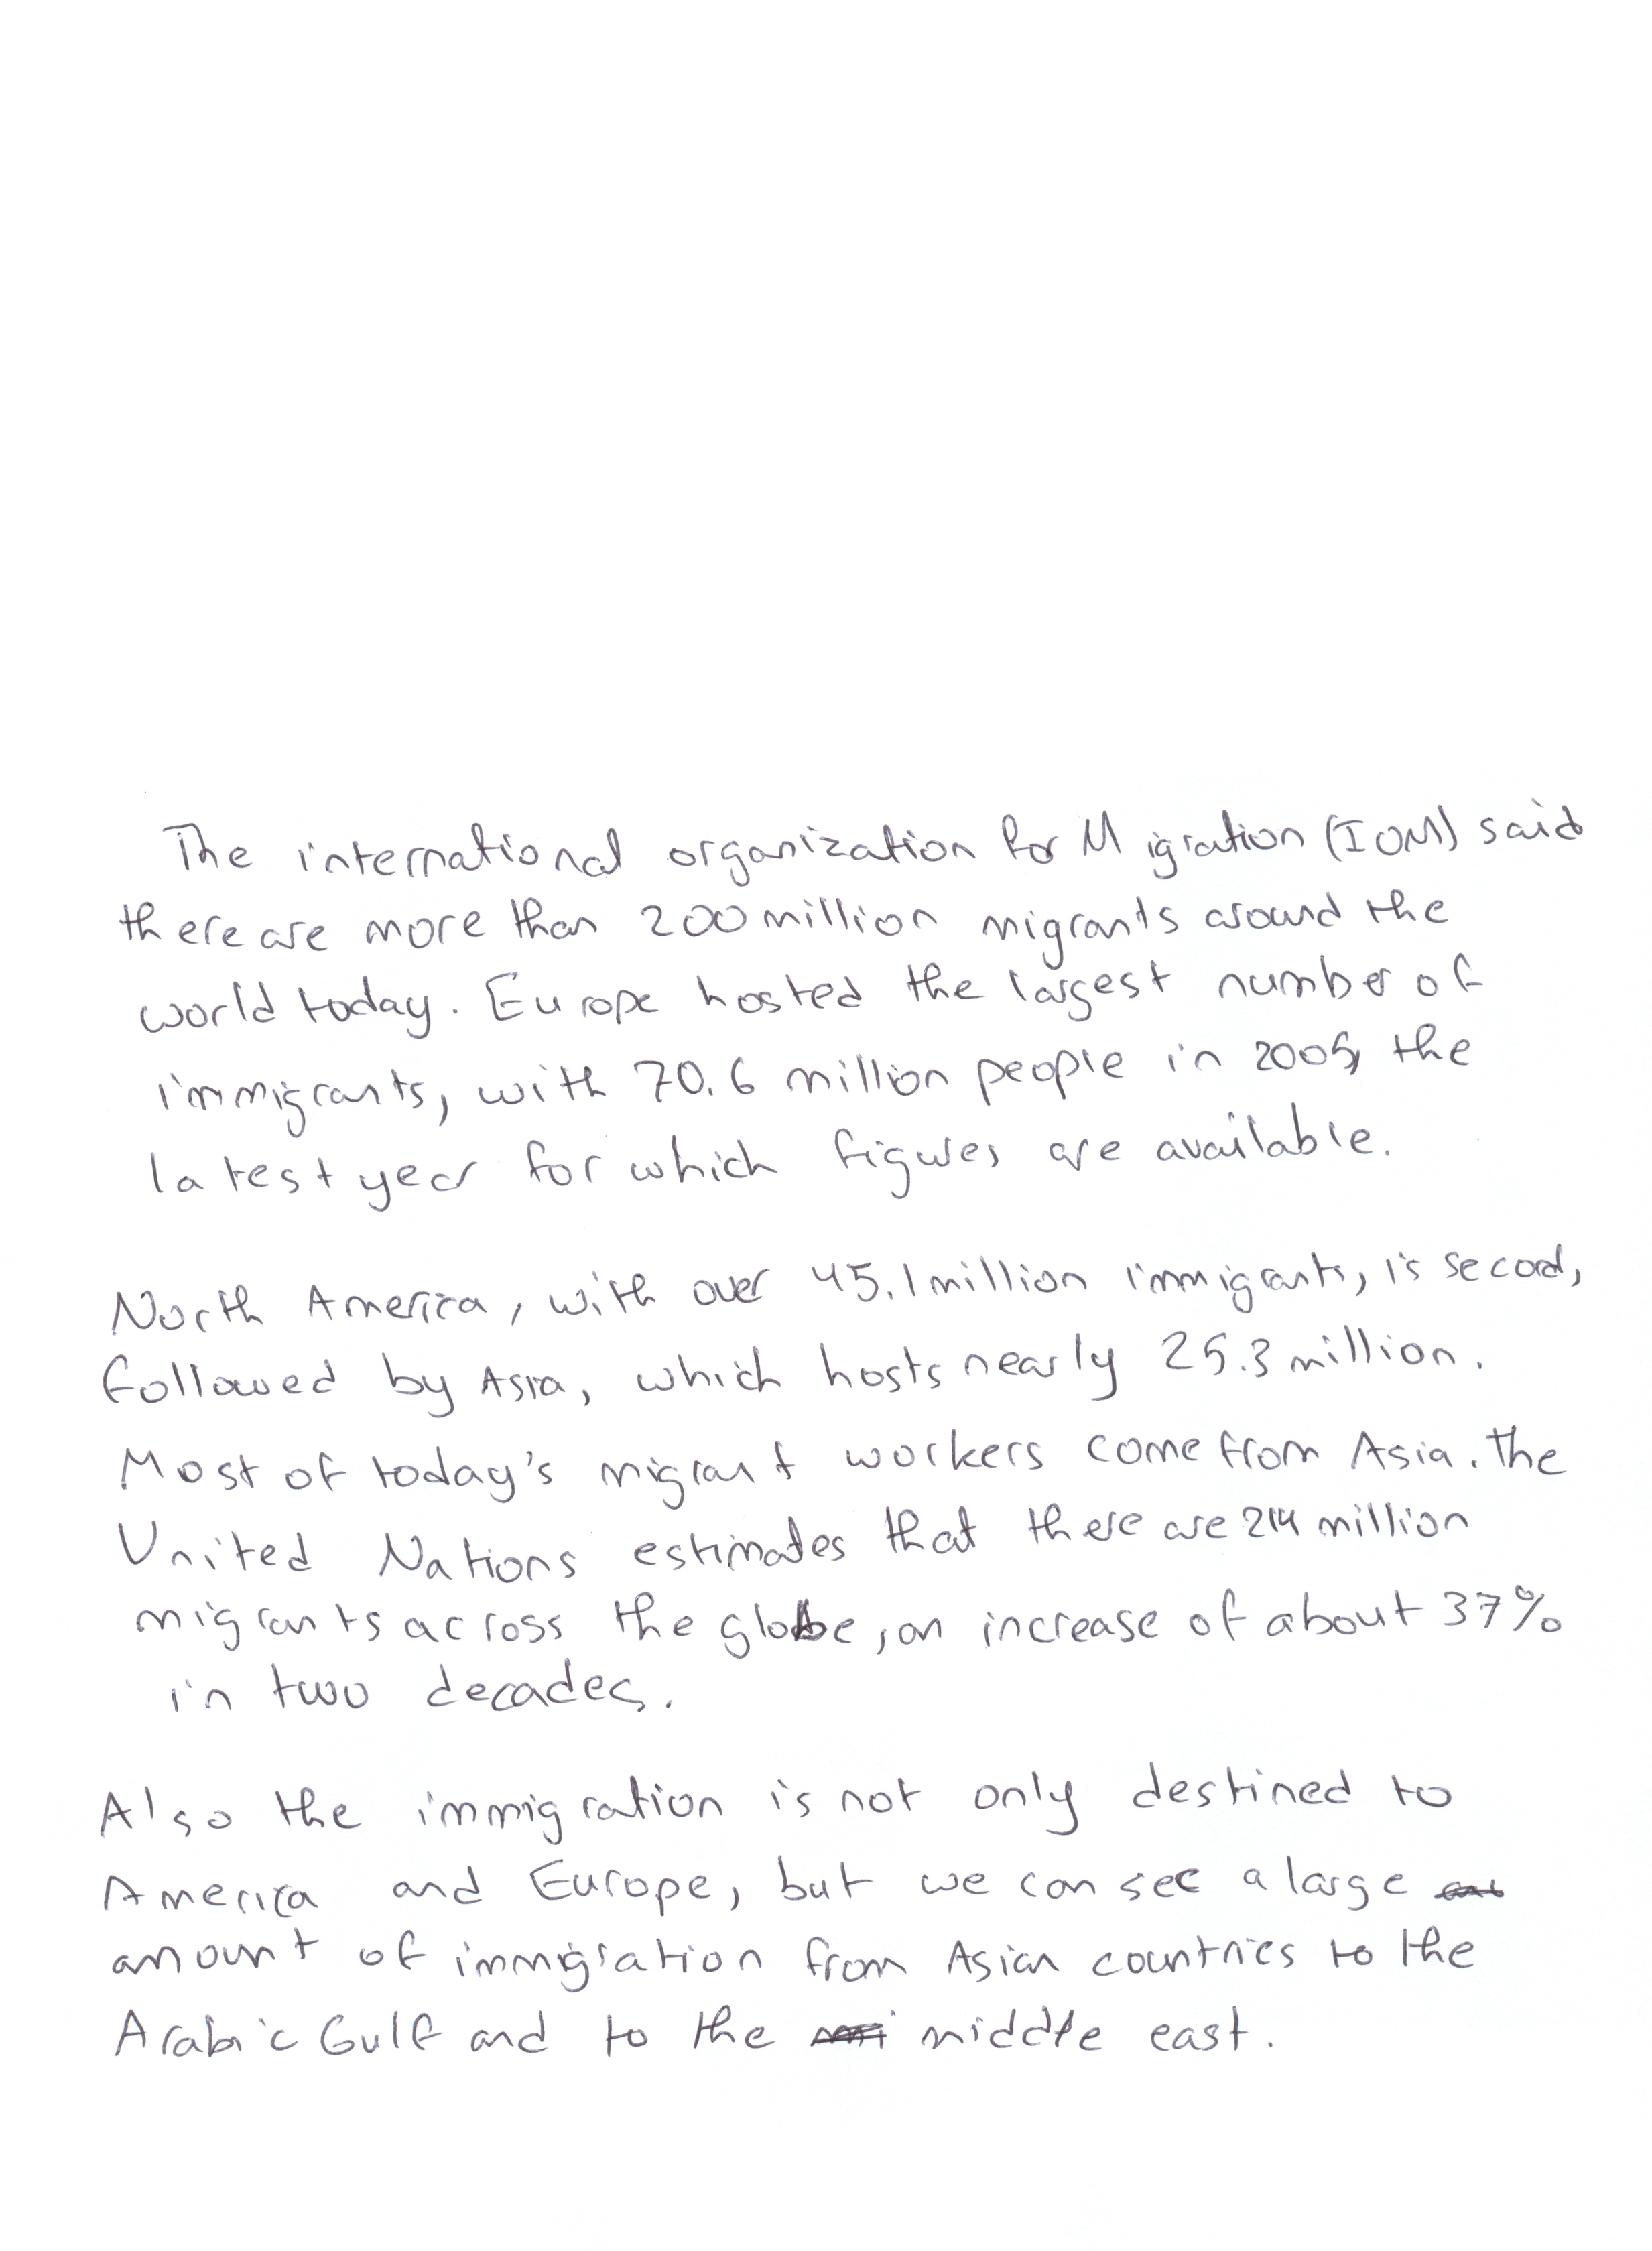 The international organization for Migration (IOM) said
there are more than 200 million migrants around the
world today. Europe hosted the largest number of
immigrants, with 70.6 million people in 2005, the
latest year for which figures are available.
North America, with over 45.1 million immigrants, is second,
followed by Asia, which hosts nearly 25.3 million.
Most of today's migrant workers come from Asia. the
United Nations estimates that there are 214 million
migrants across the globe, an increase of about 37%
in two decades.
Also the immigration is not only destined to
America and Europe, but we can see a large
amount of immigration from Asian countries to the
Arabic Gulf and to the middle east.